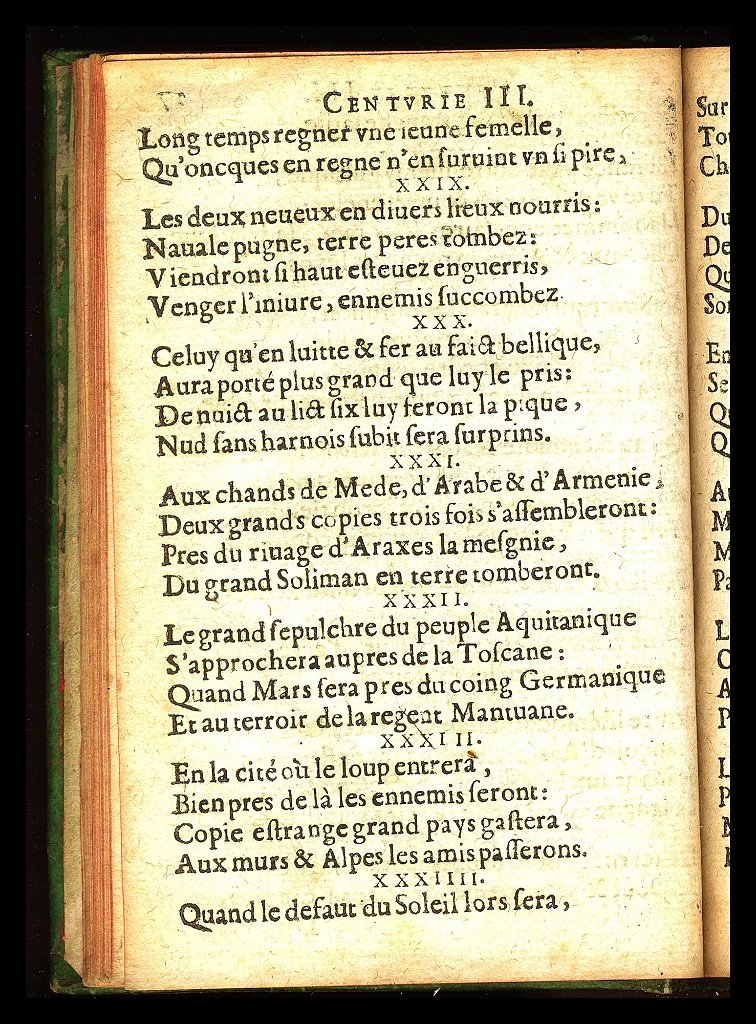 CENTVRIE III.
Long temps regner vne ieune femelle,
Qu'oncques en regne n'en suruint vn si pire,
XXIX.
Les deux neueux en diuers lieux nourris:
Nauale pugne, terre peres tombez:
Viendront si haut esteuez enguerris,
Venger l'iniure, ennemis succombez
XXX.
Celuy qu'en luitte & fer au faict bellique,
Aura porté plus grand que luy le pris:
De nuict au lict six luy feront la pique,
Nud sans harnois subit sera surprins.
XXXI.
Aux chands de Mede, d'Arabe & d'Armenie,
Deux grands copies trois fois s'assembleront:
Pres du riuage d'Araxes la mesgnie,
Du grand Soliman en terre tomberont.
XXXII.
Le grand sepulchre du peuple Aquitanique
S'approchera aupres de la Toscane:
Quand Mars sera pres du coing Germanique
Et au terroir de la regent Mantuane.
XXXIII.
En la cité où le loup entrera,
Bien pres de là les ennemis seront:
Copie estrange grand pays gastera,
Aux murs & Alpes les amis passerons.
XXXIIII.
Quand le defaut du Soleil lors sera,
Sur
To
Ch
Du
De
Qu
So
En
Se
Q
Q
A
M
M
Pa
L
C
A
P
L
P